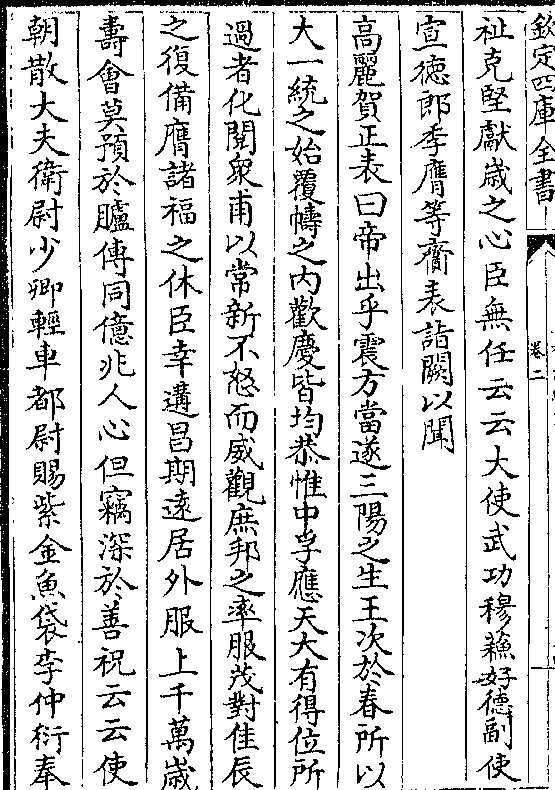 欽定四庫全書
卷二
祉克堅獻歲之心臣無任云云大使武功穆蘓好德副使
宣德郎季膺等齎表詣闕以聞
高麗賀正表曰帝出乎震方當遂三陽之生王次於春所以
大一統之始覆幬之内歡慶皆均恭惟中孚應天大有得位所
過者化閱衆甫以常新不怒而威觀庶邦之率服茂對佳辰
之復備膺諸福之休臣幸遘昌期逺居外服上千萬歲
壽㑹莫預於臚傳同億兆人心但竊深於善祝云云使
朝散大夫衛尉少卿輕車都尉賜紫金魚袋李仲衍奉